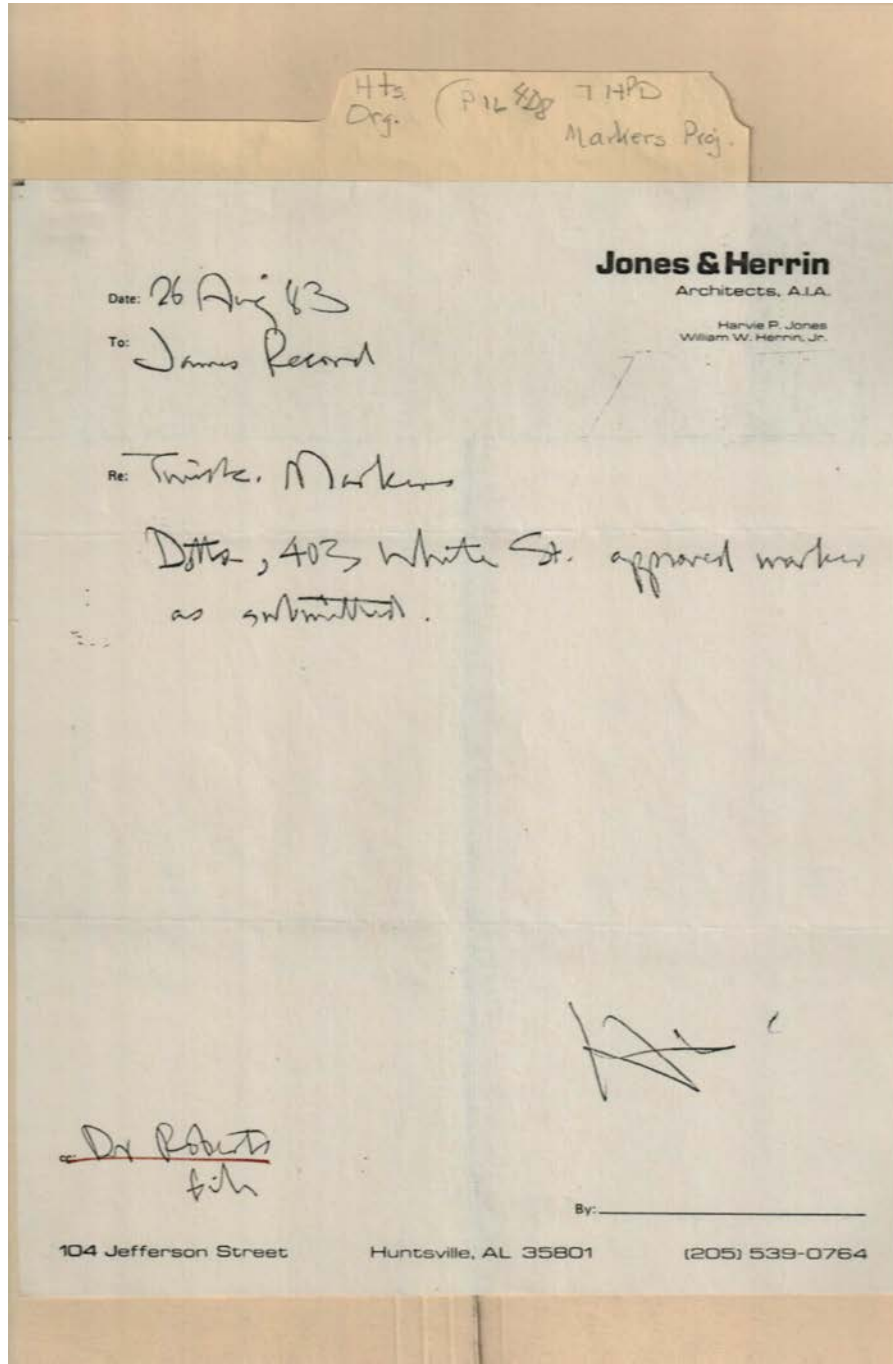 Hts. Org. (P12 THPD
Markers Proj.
Jones & Herrin
Architects, A.I.A.
Harvie P. Jones
William W. Herrin, Jr.
Date: 26 Aug 83
To: James Record
Re: Twick. Markers
Ditto, 403 White St. approved marker
as submitted.
cc: Dr Roberts
file
By:
104 Jefferson Street Huntsville, AL 35801 (205) 539-0764